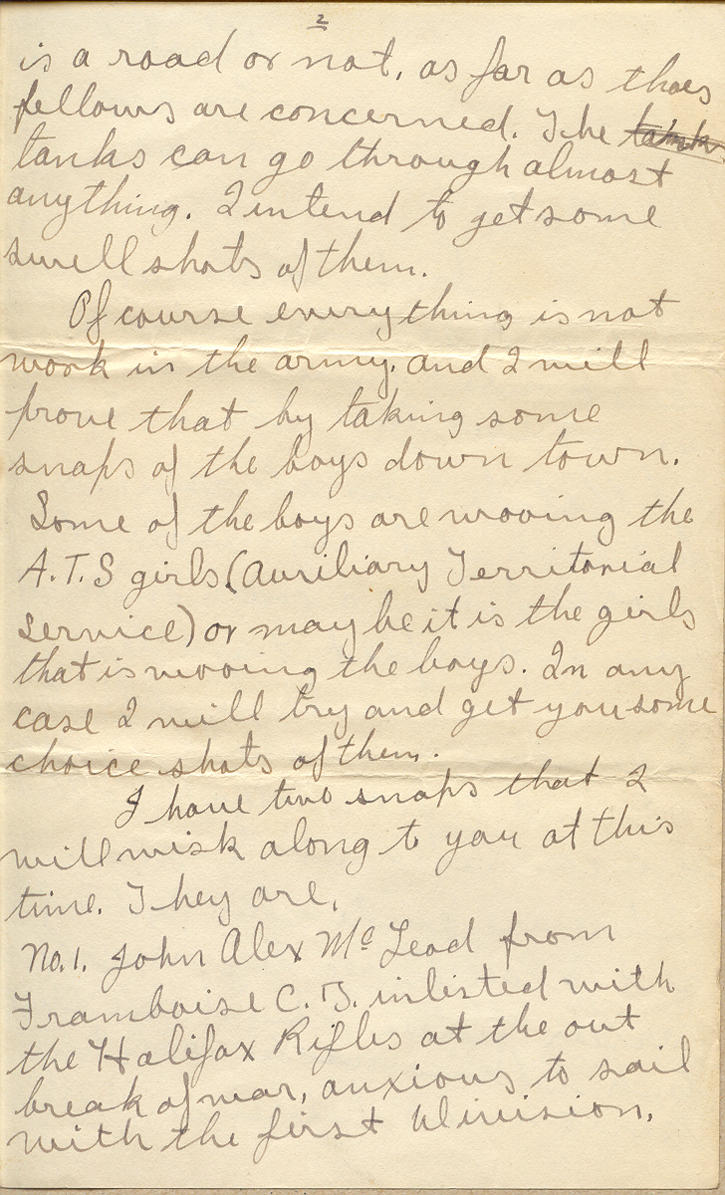 2
is a road or not, as far as thoes
fellows are concerned. The tank
tanks can go through almost
anything. I intend to get some
swell shots of them.
Of course everything is not
work in the army. and I will
prove that by taking some
snaps of the boys down town.
Some of the boys are wooing the
A.T.S girls (Auxiliary Territorial
Service) or may be it is the girls
that is wooing the boys. In any
case I will try and get you some
choice shots of them.
I have two snaps that I
will wisk along to you at this
time. They are,
No.1. John Alex McLeod from
Framboise C.B. inlisted with
the Halifax Rifles at the out
break of war, anxious to sail
with the first Division.